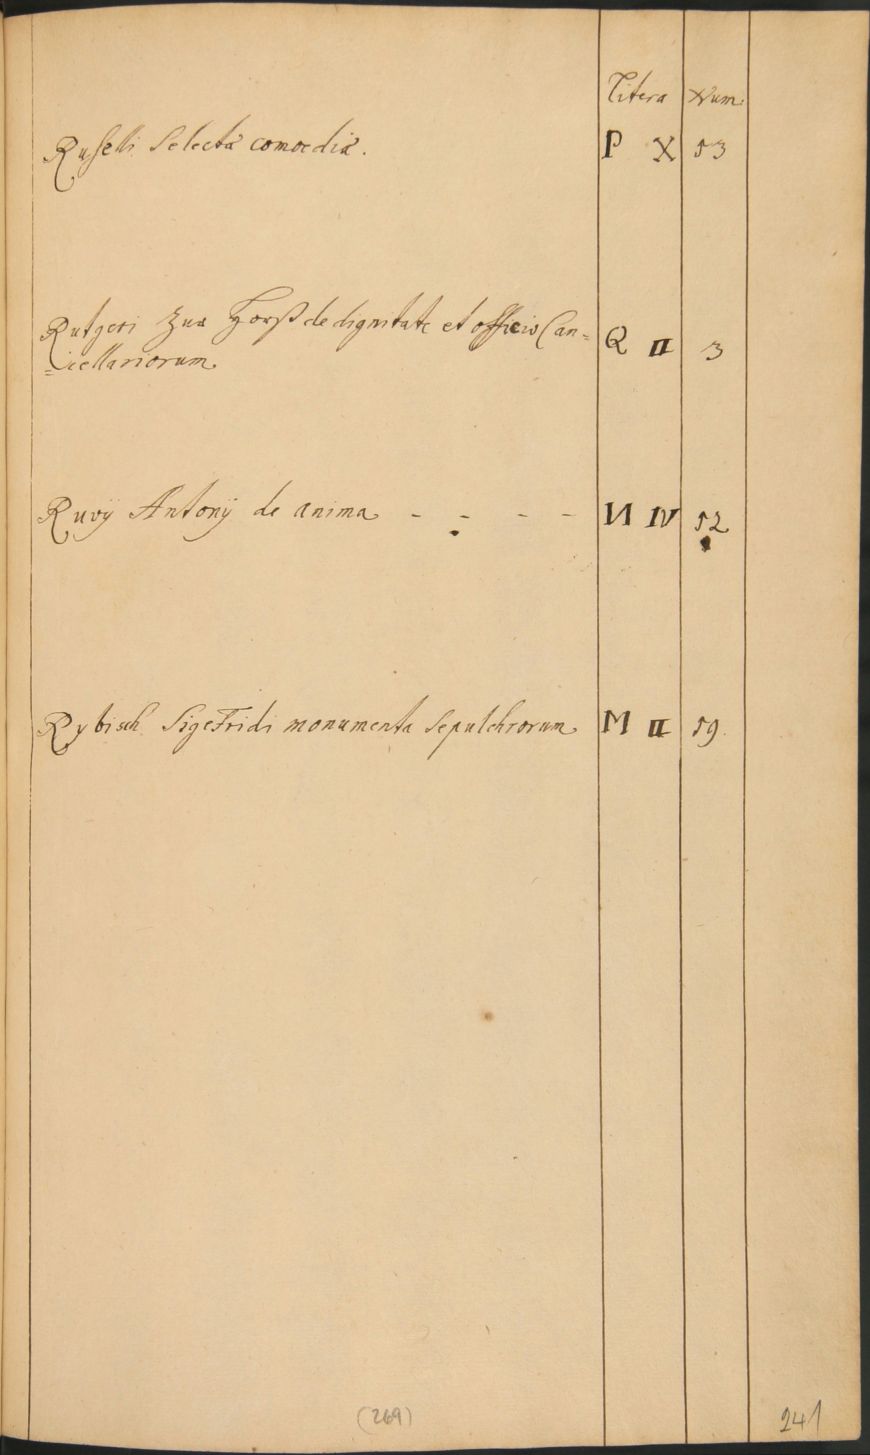 Litera Num:
Ruselli Selectæ comoediæ. P X 53
Rutgeri Zur Horst de dignitate et officio Can= Q II 3
=cellariorum
Ruvÿ Antonÿ de anima - - - - N IV 52
Rybisch Sigefridi monumenta Sepulchrorum M II 59
(269) 241